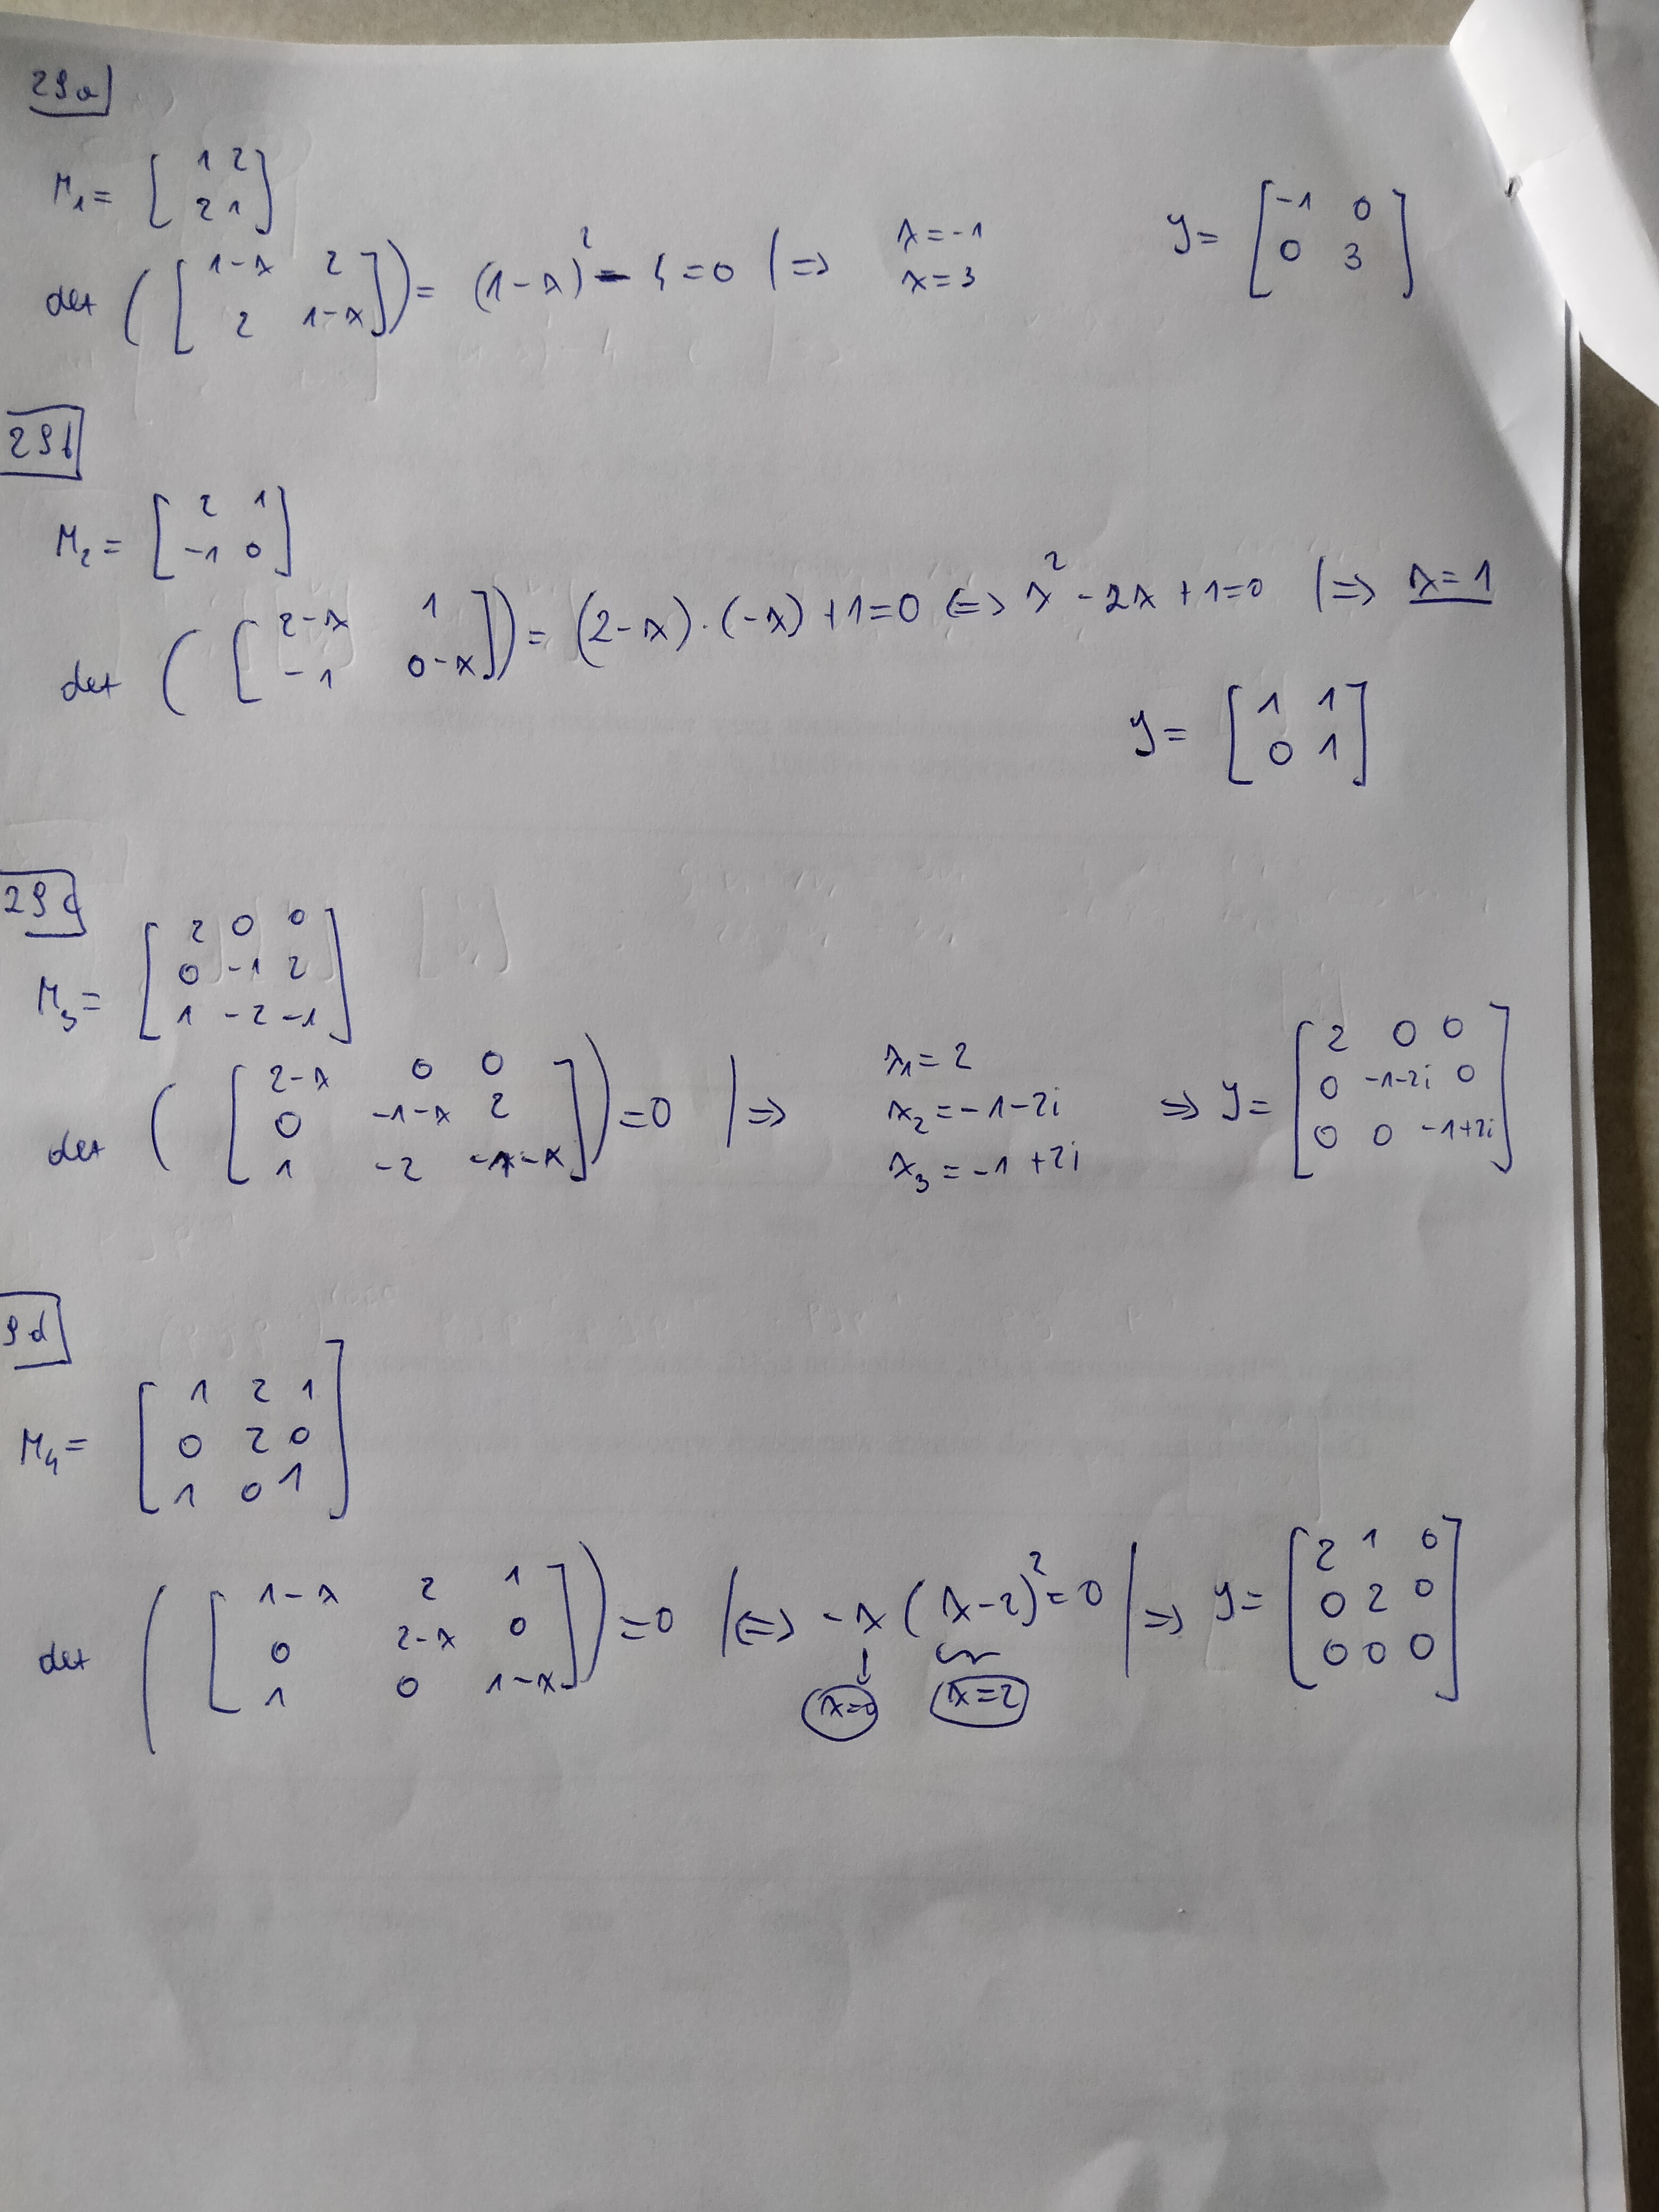 29a
M₁ = [ 1 2
2 1 ]
det ( [ 1-λ 2
2 1-λ ] ) = (1-λ)² - 4 = 0 |=> λ = -1
λ = 3
y = [ -1 0
0 3 ]
29b
M₂ = [ 2 1
-1 0 ]
det ( [ 2-λ 1
-1 0-λ ] ) = (2-λ)·(-λ) + 1 = 0 <=> λ² - 2λ + 1 = 0 |=> λ = 1
y = [ 1 1
0 1 ]
29c
M₃ = [ 2 0 0
0 -1 2
1 -2 -1 ]
det ( [ 2-λ 0 0
0 -1-λ 2
1 -2 -1-λ ] ) = 0 |=> λ₁ = 2
λ₂ = -1-2i
λ₃ = -1+2i
=> y = [ 2 0 0
0 -1-2i 0
0 0 -1+2i ]
9d
M₄ = [ 1 2 1
0 2 0
1 0 1 ]
det ( [ 1-λ 2 1
0 2-λ 0
1 0 1-λ ] ) = 0 |<=> -λ (λ-2)² = 0 |=> y = [ 2 1 0
0 2 0
0 0 0 ]
↓
λ=0 λ=2